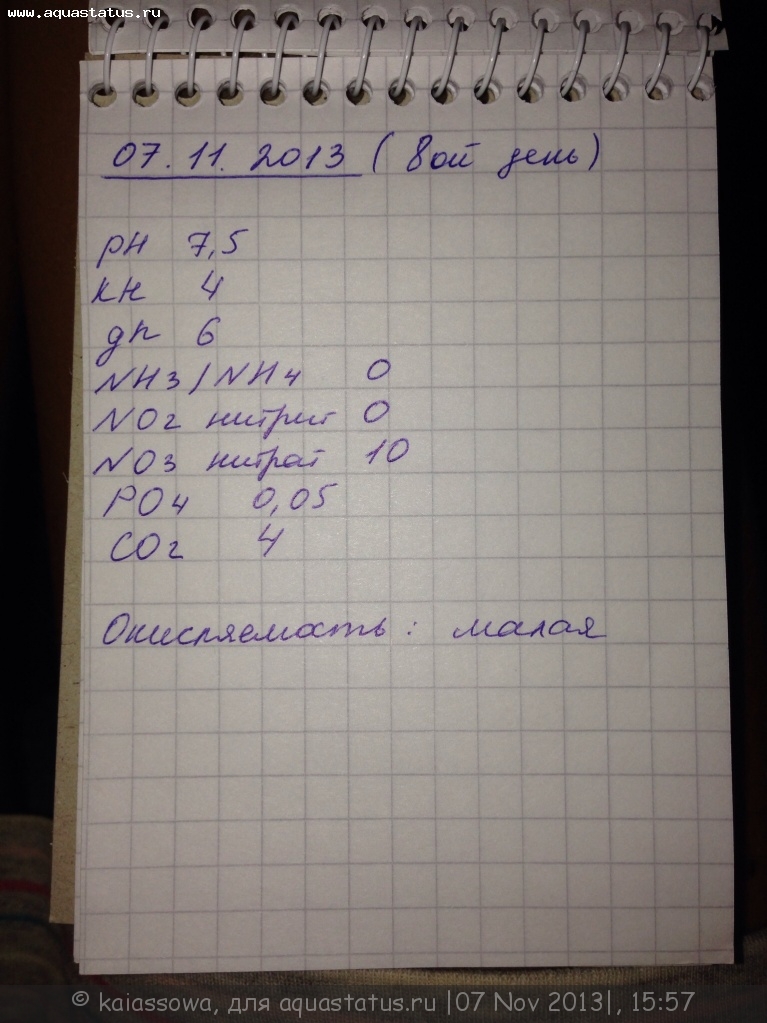 www.aquastatus.ru
07.11.2013 (8ой день)
pH 7,5
кн 4
дh 6
NH3/NH4 0
NO2 нитрит 0
NO3 нитрат 10
PO4 0,05
CO2 4
Окисляемость: малая
© kaiassowa, для aquastatus.ru |07 Nov 2013|, 15:57